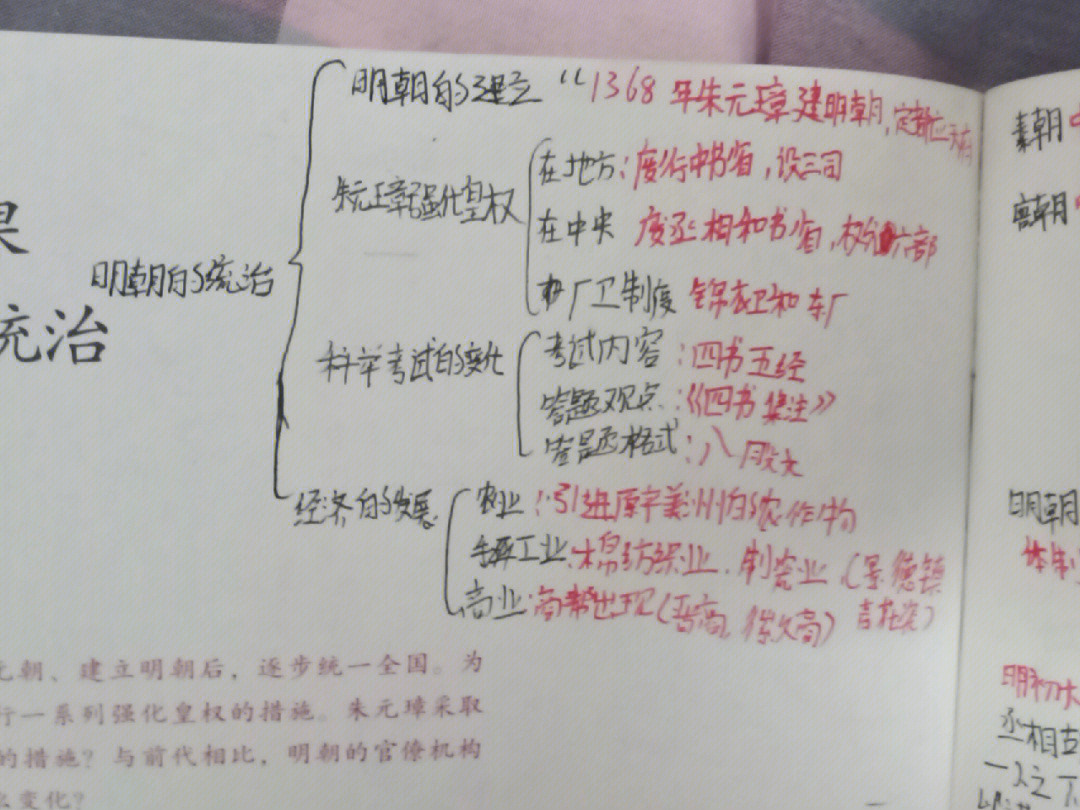 明朝的建立 “1368年朱元璋建明朝,定都应天府
朱元璋强化皇权
在地方:废行中书省,设三司
在中央 废丞相和书省,权分六部
厂卫制度 锦衣卫和东厂
明朝的统治
统治
科举考试的变化
考试内容:四书五经
答题观点:《四书集注》
答题格式:八股文
经济的发展
农业:引进原产美洲的农作物
手工业:棉纺织业、制瓷业(景德镇
商业:商帮出现(晋商,徽商) 青花瓷)
元朝、建立明朝后,逐步统一全国。为
行一系列强化皇权的措施。朱元璋采取
的措施?与前代相比,明朝的官僚机构
么变化?
秦朝
宫朝
明朝
体制
明初
丞相古
一人之下